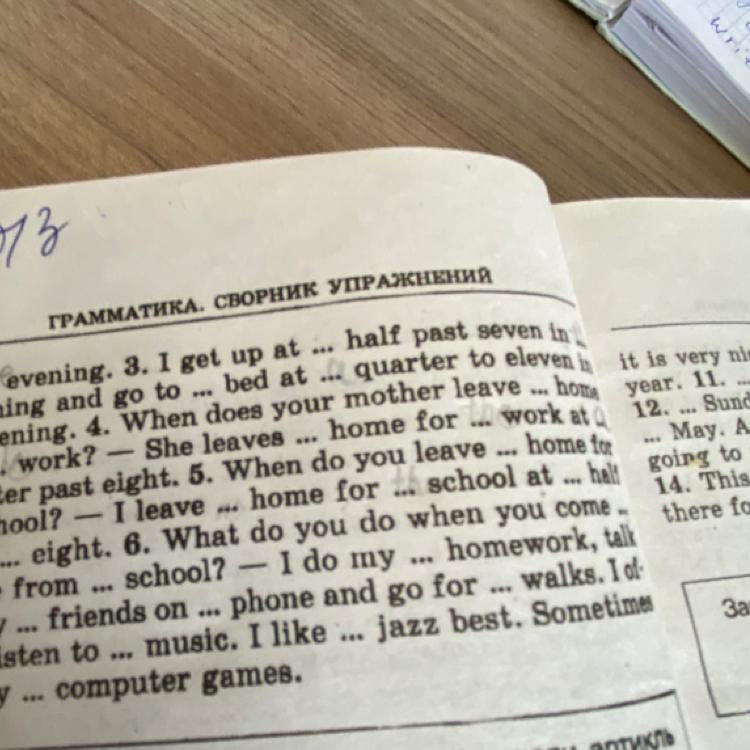 ГРАММАТИКА. СБОРНИК УПРАЖНЕНИЙ
evening. 3. I get up at ... half past seven in
ning and go to ... bed at ... quarter to eleven in
ening. 4. When does your mother leave ... home
. work? — She leaves ... home for ... work at a
ter past eight. 5. When do you leave ... home for
hool? — I leave ... home for ... school at ... half
... eight. 6. What do you do when you come ..
from ... school? — I do my ... homework, talk
y ... friends on ... phone and go for ... walks. I of-
isten to ... music. I like ... jazz best. Sometimes
y ... computer games.
артикль
it is very ni
year. 11. ...
12. ... Sund
... May. A
going to
14. This
there fo
За